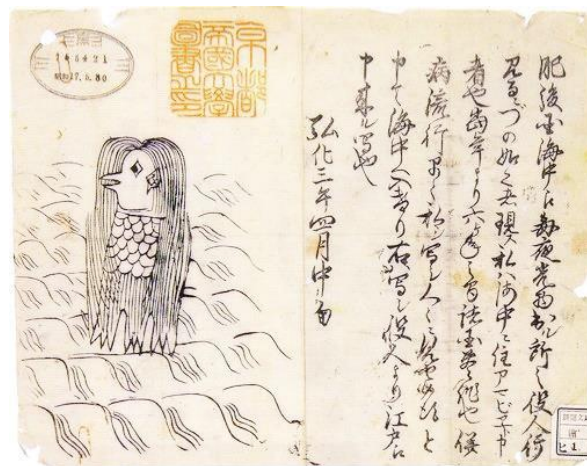 肥後国海中え毎夜光物出ル所之役人行
見るニづの如く者現ス私ハ海中ニ住アマビヱト申
者也当年より六ヶ年之間諸国豊作也併
病流行早々私シ写シ人々ニ見せ候得と
申て海中へ入けり右写シ役人より江戸え
申来ル写也
弘化三年四月中旬
京都
帝國大學
圖書之印